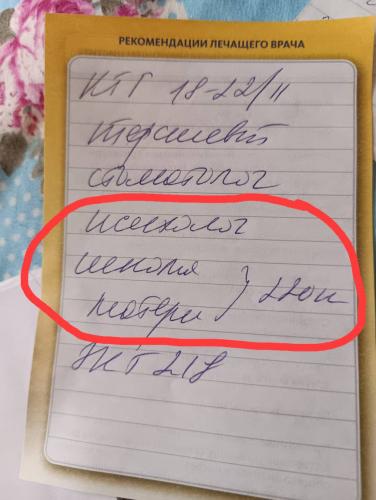 РЕКОМЕНДАЦИИ ЛЕЧАЩЕГО ВРАЧА
КТГ 18-22/11
терапевт
стоматолог
психолог
школа
матери } 220к